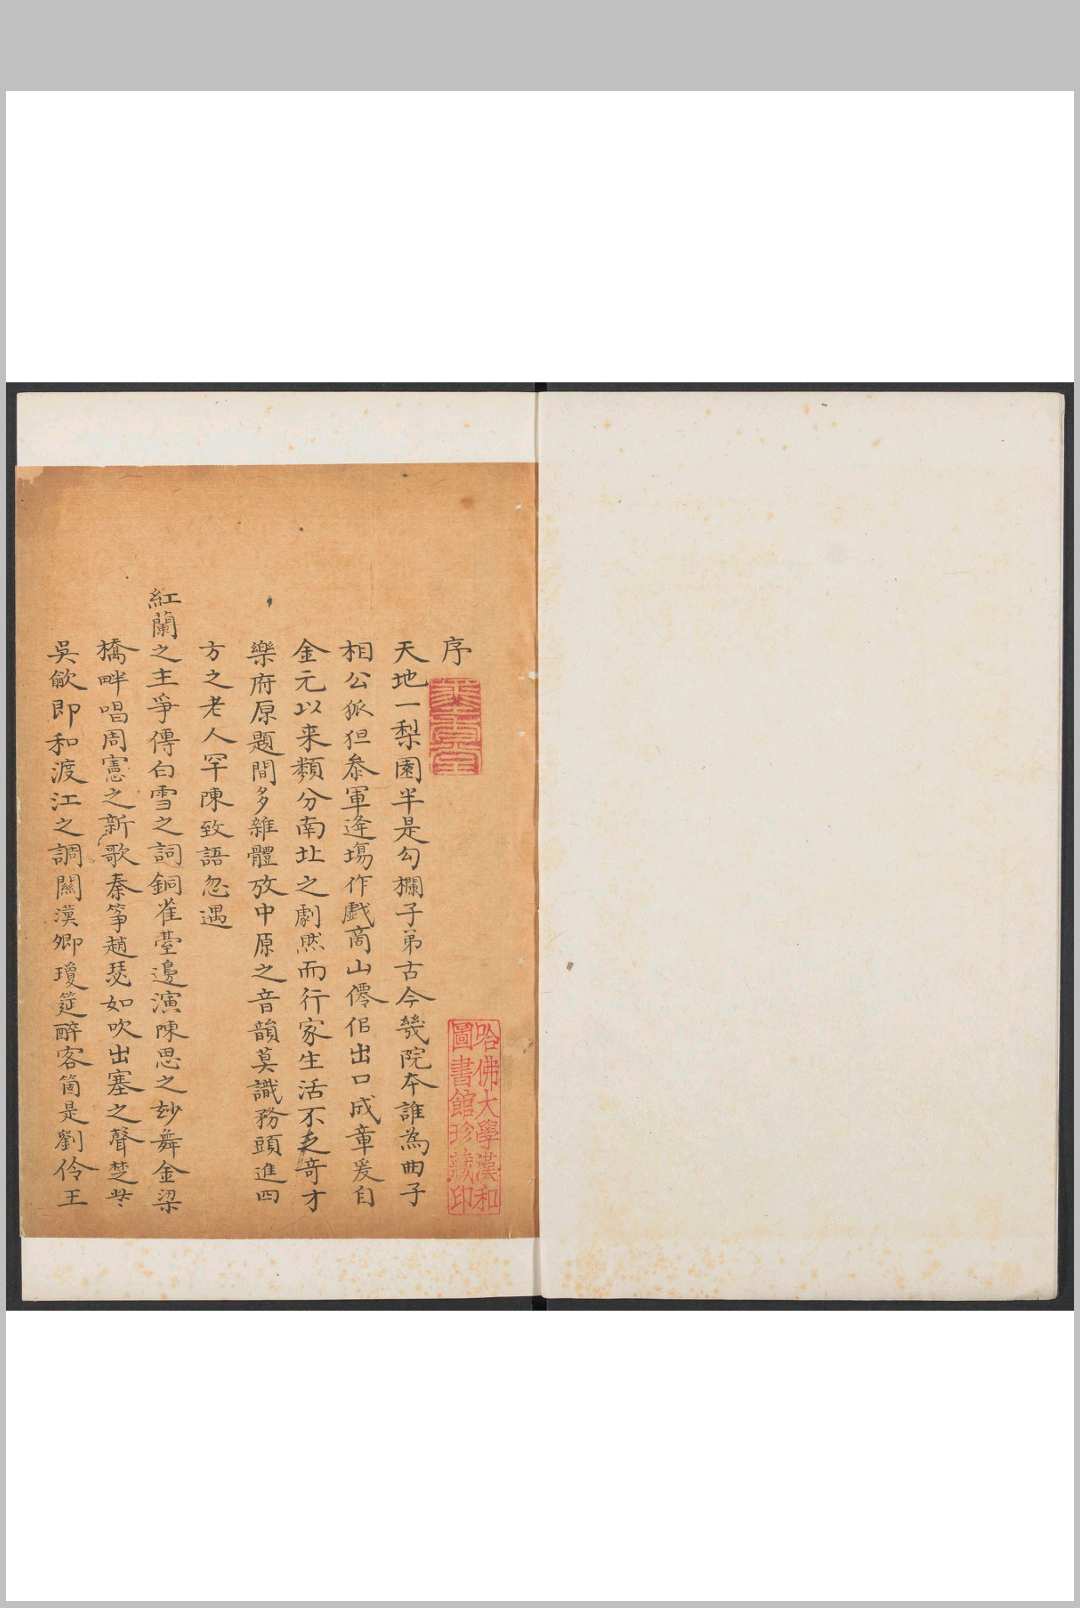 序
天地一梨園半是勾欄子弟古今幾院夲誰為曲子
相公狐狚叅軍逄塲作戱商山僊侶出口成章爰自
金元以来類分南北之劇然而行家生活不乏竒才
樂府原題間多雜體放中原之音韻莫識務頭進四
方之老人罕陳致語忽遇
紅蘭之主爭傳白雪之詞銅雀臺邊演陳思之玅舞金梁
橋畔唱周憲之新歌秦箏趙瑟如吹出塞之聲楚些
吳歈即和渡江之調關漢卿瓊筵醉客箇是劉伶王
哈佛大學漢和
圖書館珍藏印